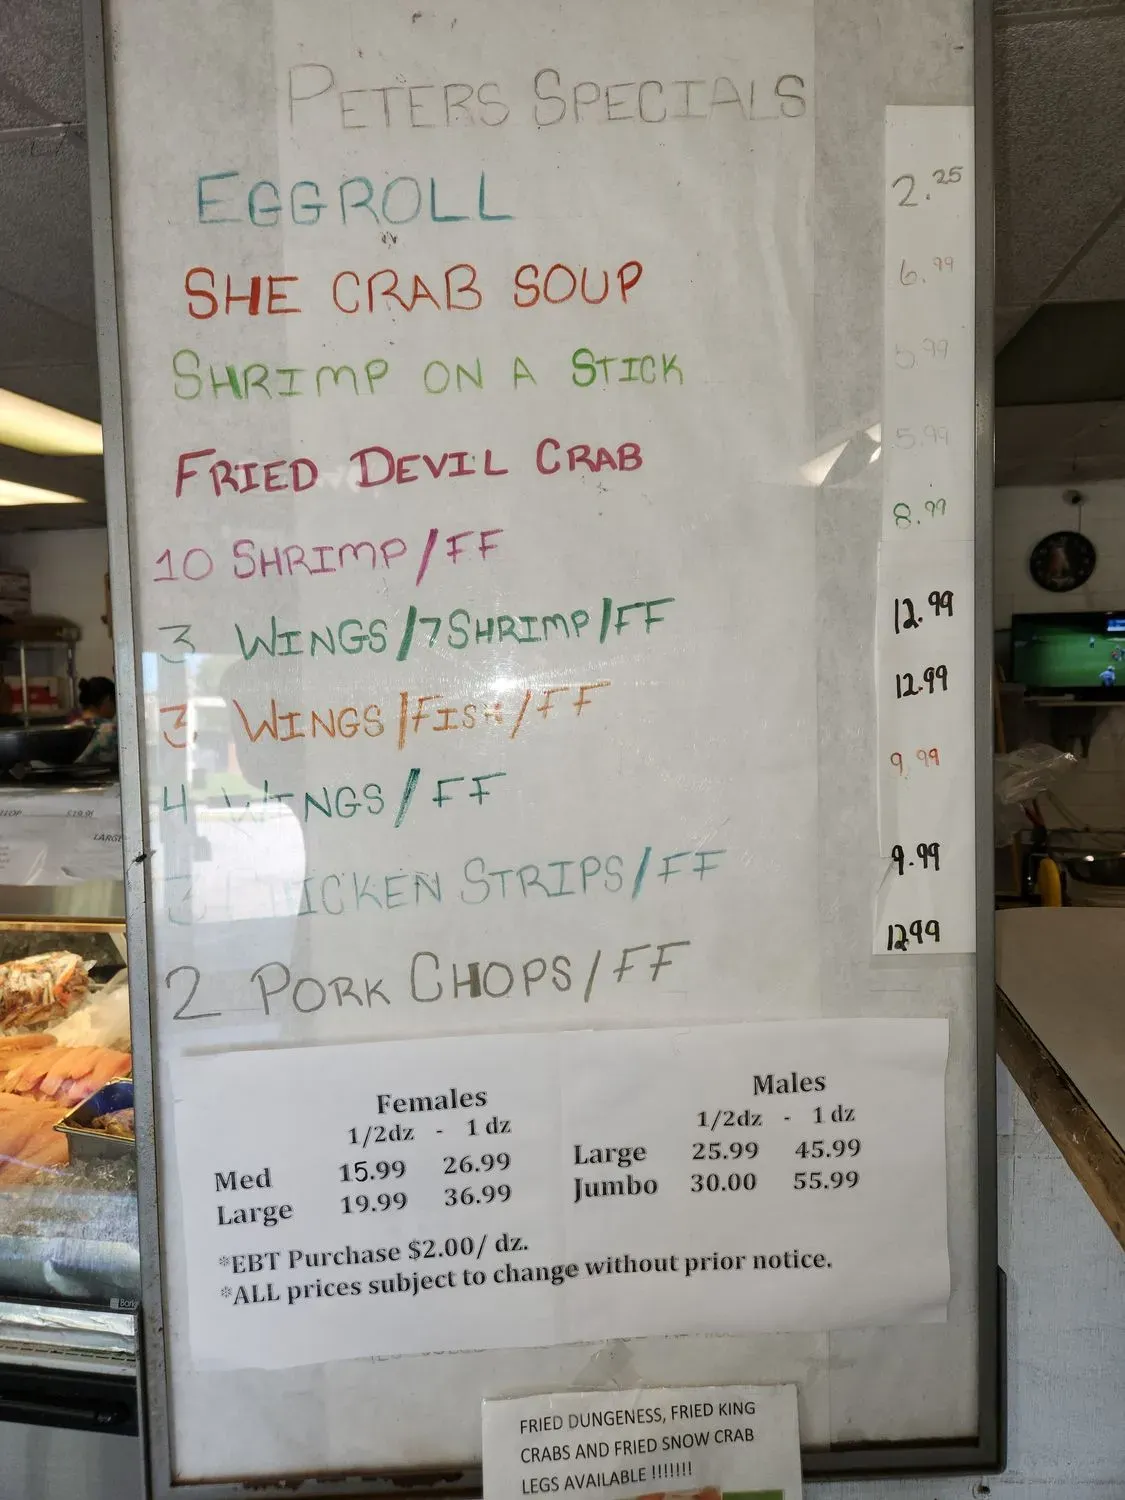 PETERS SPECIALS
EGGROLL 2.25
SHE CRAB SOUP 6.99
SHRIMP ON A STICK 5.99
FRIED DEVIL CRAB 5.99
10 SHRIMP/FF 8.99
3 WINGS/7 SHRIMP/FF 12.99
3 WINGS/FISH/FF 12.99
4 WINGS/FF 9.99
3 CHICKEN STRIPS/FF 9.99
2 PORK CHOPS/FF 12.99
Females
1/2dz - 1 dz
Med 15.99 26.99
Large 19.99 36.99
Males
1/2dz - 1 dz
Large 25.99 45.99
Jumbo 30.00 55.99
*EBT Purchase $2.00/ dz.
*ALL prices subject to change without prior notice.
FRIED DUNGENESS, FRIED KING
CRABS AND FRIED SNOW CRAB
LEGS AVAILABLE !!!!!!!